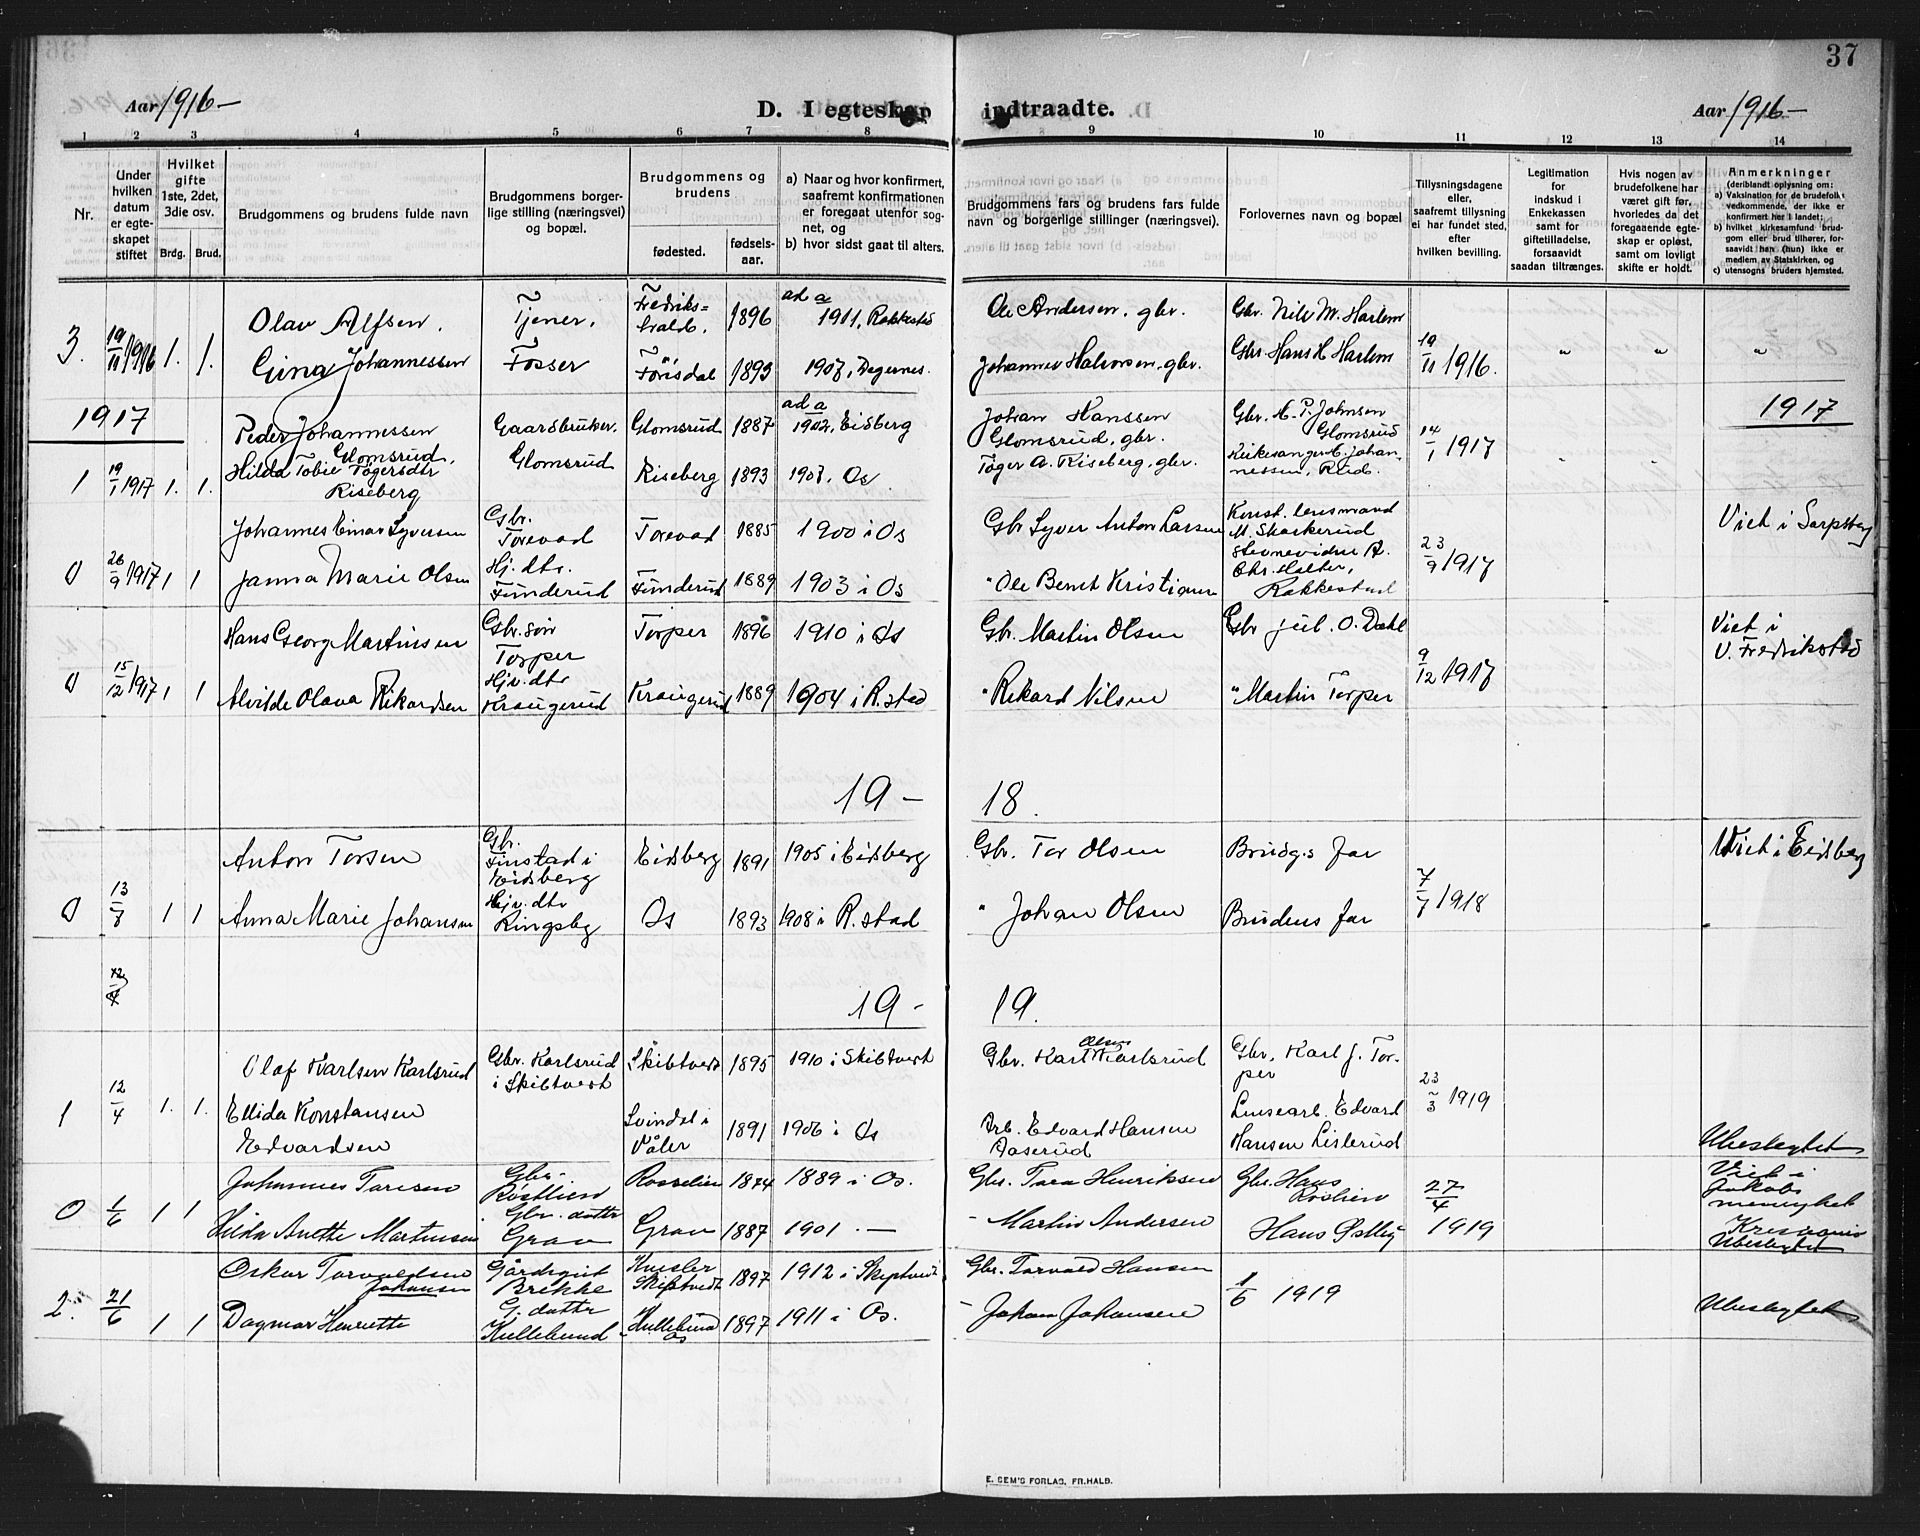 37
Aar 1916 –
D. I egteskap indtraadte.
Aar 1916 –
1 2 3 4 5 6 7 8 9 10 11 12 13 14
Nr.
Under hvilken datum er egteskapet stiftet
Hvilket gifte 1ste, 2det, 3die osv.
Brdg. Brud.
Brudgommens og brudens fulde navn
Brudgommens borgerlige stilling (næringsvei) og bopæl.
Brudgommens og brudens
fødested.
fødselsaar.
a) Naar og hvor konfirmert, saafremt konfirmationen er foregaat utenfor sognet, og
b) hvor sidst gaat til alters.
Brudgommens fars og brudens fars fulde navn og borgerlige stillinger (næringsvei).
Forlovernes navn og bopæl
Tillysningsdagene eller, saafremt tillysning ei har fundet sted, efter hvilken bevilling.
Legitimation for indskud i Enkekassen samt for giftetilladelse, forsaavidt saadan tiltrænges.
Hvis nogen av brudefolkene har været gift før, hvorledes da det foregaaende egteskap er opløst, samt om lovligt skifte er holdt.
Anmerkninger
(deriblandt oplysning om:
a) Vaksination for de brudefolks vedkommende, der ikke er konfirmert her i landet;
b) hvilket kirkesamfund brudgom eller brud tilhører, forsaavidt han (hun) ikke er medlem av Statskirken, og
c) utensogns bruders hjemsted.
3. 19/11 1916 1. 1.
Olav Alfsen. Tjener. Fredrikshald. 1896 ad a 1911, Rakkestad Ole Andersen, gbr. Gbr. Nils M. Harlem
Gina Johannessen Fosser Förisdal 1893 1907, Degernes. Johannes Halvorsen, gbr. Gbr. Hans H Harlem 19/11 1916. " " "
1917
1917
1 19/1 1917 1. 1.
Peder Johannessen Glomsrud, Gaardbruker. Glomsrud Glomsrud 1887 ad a 1902, Eidberg Johan Hanssen Glomsrud, gbr. Gbr. H. P. Johnsen Glomsrud 14/1 1917
Hilda Tobie Tögersdtr Riseberg Riseberg 1893 1907, Os Töger A. Riseberg, gbr. Kirkesanger C. Johannessen, Rud.
0 26/9 1917 1 1
Johannes Einar Syversen Gbr. Torevad Torevad 1885 1900 i Os Gbr Syver Anton Larsen Konst. lensmand M. Skarkerud 23/9 1917 Viet i Sarpsborg
Janna Marie Olsen Hj. dtr. Funderud Funderud 1889 1903 i Os " Ole Bernt Kristiansen Stevnevidne A. Chr. Holter, Rakkestad
0 15/12 1917 1 1
Hans Georg Martinsen Gbr. sön Torper Torper 1896 1910 i Os Gbr. Martin Olsen Gbr Jul. O. Dahl 9/12 1917 Viet i V. Fredrikstad
Alvilde Olava Rikardsen Hjv. dtr Kraugerud Kraugerud 1889 1904 i R.stad " Rikard Nilsen " Martin Torper
19 – 18.
0 13/7 1 1
Anton Torsen Gbr. Finstad i Eidsberg Eidsberg 1891 1905 i Eidsberg Gbr. Tor Olsen Brudg.s far 7/7 1918 Viet i Eidsberg
Anna Marie Johansen Hjv. dtr Ringsby Os 1893 1908 i R. stad " Johan Olsen Brudens far
12/4
19 – 19.
1 12/4 1. 1.
Olaf Karlsen Karlsrud Gbr. Karlsrud i Skibtvert Skibtvert 1895 1910 i Skibtvert Gbr. Karl Olsen Karlsrud Gbr. Karl J. Torper 23/3 1919
Ellida Konstansen Edvardsen Svindal i Våler 1891 1906 i Os Arb. Edvard Hansen Aaserud Linsearb. Edvard Hansen Lislerud Ubeslegtet
0 1/6 1 1
Johannes Toresen Gbr. Röstlien Rosselien 1874 1889 i Os. Gbr. Tora Henriksen Gbr. Hans Roslien 27/4 1919 Viet i Jakobs menighet Kristiania
Hilda Anette Martinsen Gbr. datter Grav Grav 1887 1901 — – Martin Andersen Hans Östby Ubeslegtet
2. 21/6 1 1
Oskar Torvaldsen Gårdsgut Brekke Skibtvedt 1897 1912 i Skiptvedt Gbr. Torvald Hansen 1/6 1919
Dagmar Henriette Johansen G. datter Kullebund Hullebund Os 1897 1911 i Os. – Johan Johansen Ubeslegtet
E. SEM'S FORLAG, FR.HALD.